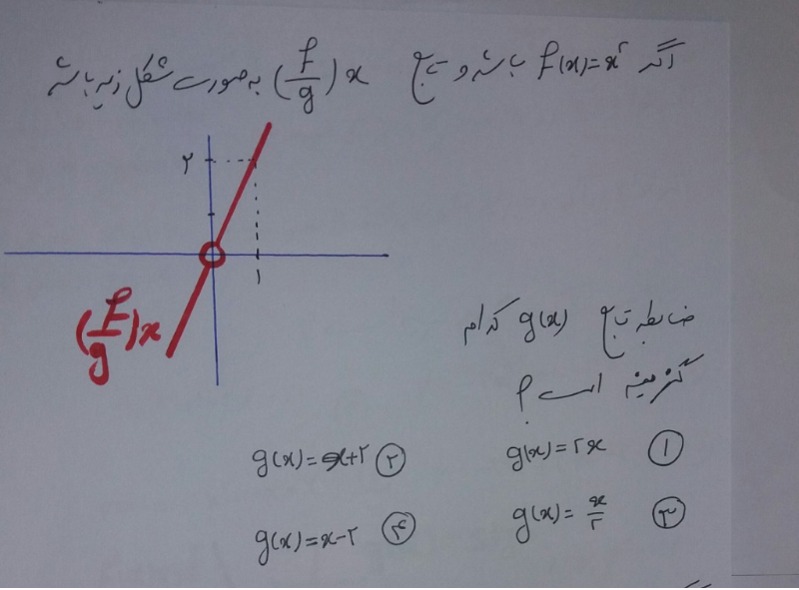 اگر f(x)=x² باشد و تابع (f/g)x به صورت شکل زیر باشد
۲
۱
(f/g)x
ضابطه تابع g(x) کدام
گزینه است؟
۱ g(x)=۲x ۲ g(x)=x+۲
۳ g(x)=x/۲ ۴ g(x)=x-۲